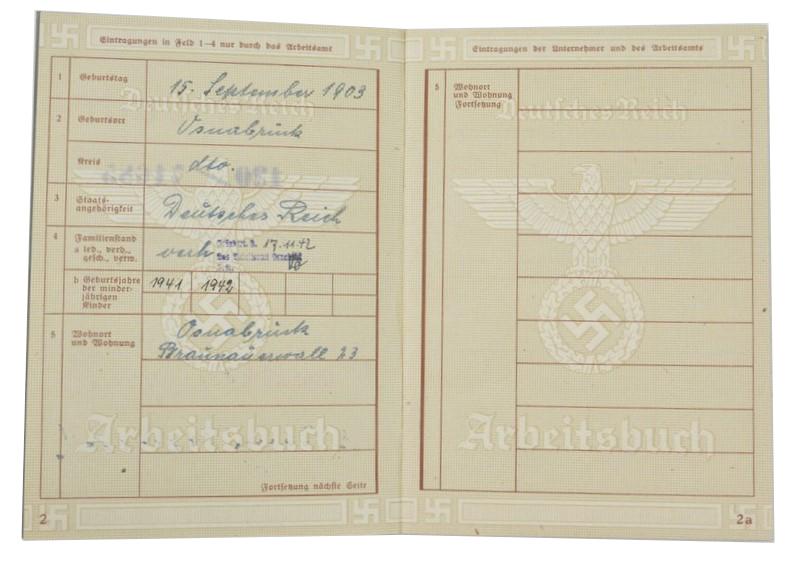 Eintragungen in Feld 1-4 nur durch das Arbeitsamt
1 Geburtstag 15. September 1903
Deutsches Reich
2 Geburtsort Osnabrück
Kreis dto.
3 Staats-
angehörigkeit Deutsches Reich
4 Familienstand
a led., verh.,
gesch., verw. verh 17.11.42
b Geburtsjahre
der minder-
jährigen
Kinder 1941 1942
5 Wohnort
und Wohnung Osnabrück
Braunauerwall 23
Arbeitsbuch
Fortsetzung nächste Seite
2
Eintragungen der Unternehmer und des Arbeitsamts
5 Wohnort
und Wohnung
Fortsetzung
Deutsches Reich
Arbeitsbuch
2a